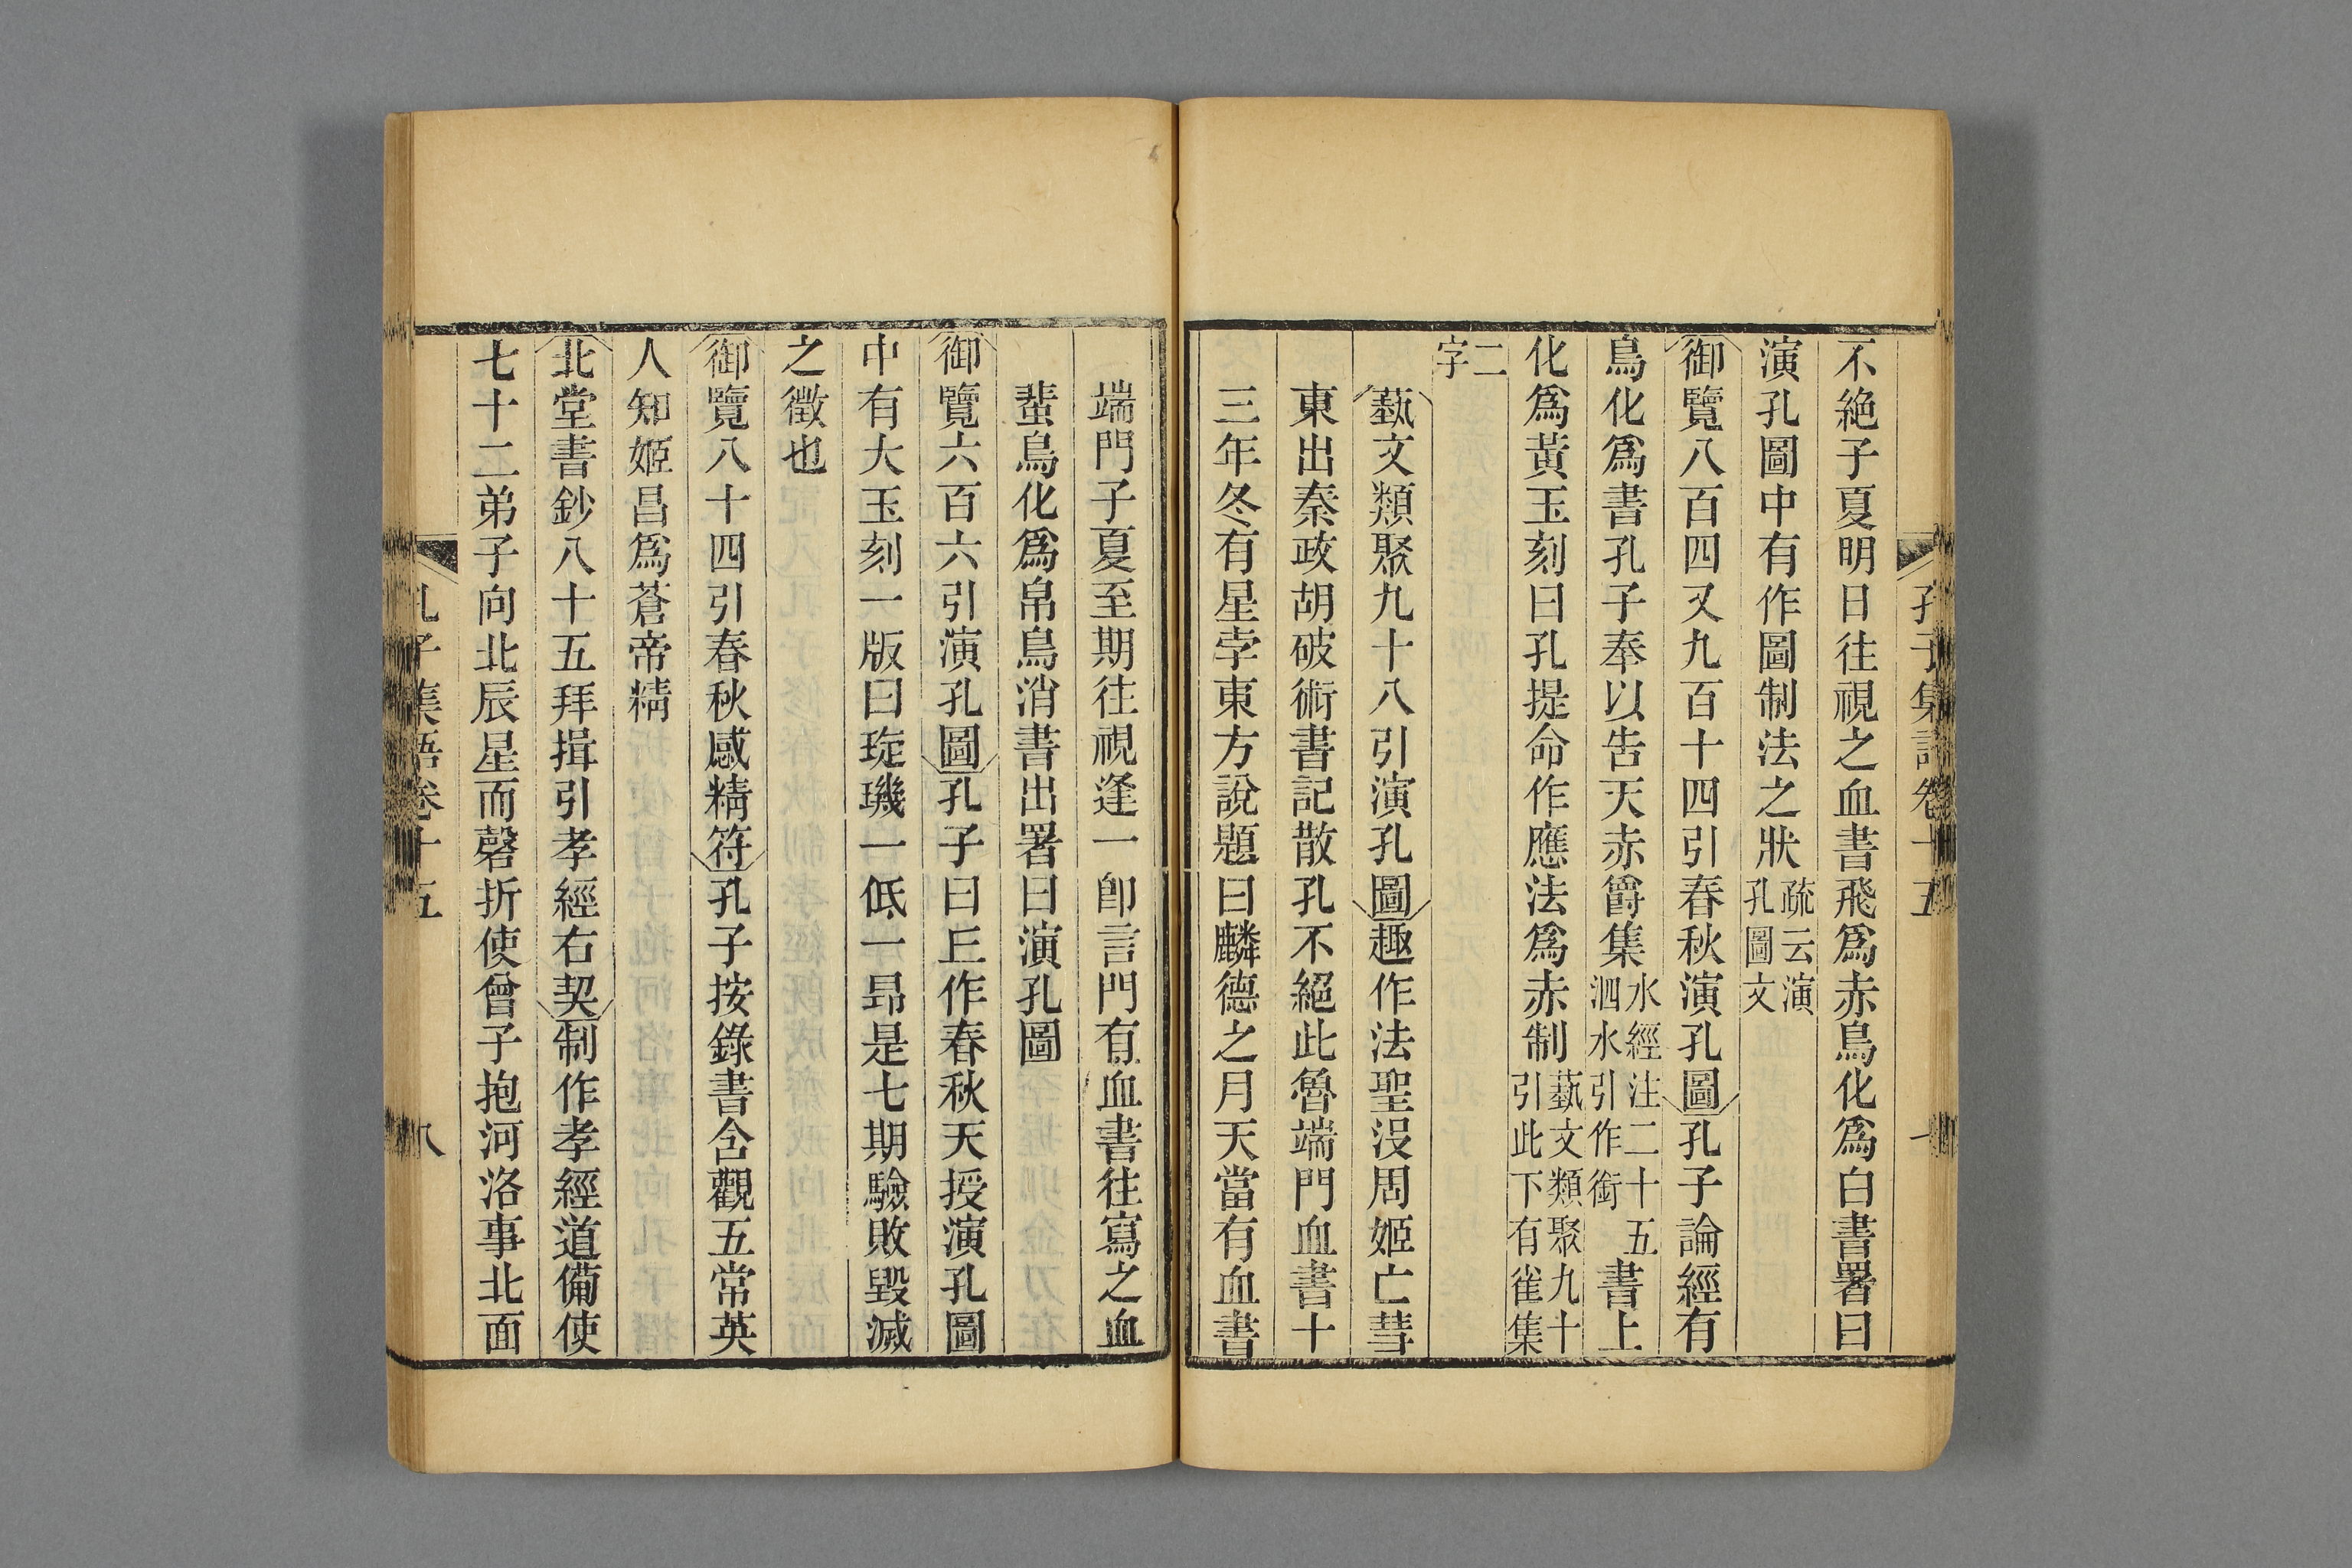 不絶子夏明日往視之血書飛爲赤鳥化爲白書署曰
演孔圖中有作圖制法之狀疏云演孔圖文
御覽八百四又九百十四引春秋演孔圖孔子論經有
鳥化爲書孔子奉以告天赤爵集水經注二十五泗水引作銜書上
化爲黃玉刻曰孔提命作應法爲赤制藝文類聚九十引此下有雀集
二字
藝文類聚九十八引演孔圖趣作法聖没周姬亡彗
東出秦政胡破術書記散孔不絕此魯端門血書十
三年冬有星孛東方說題曰麟德之月天當有血書
端門子夏至期往視逢一郎言門有血書往寫之血
蜚鳥化爲帛鳥消書出署曰演孔圖
御覽六百六引演孔圖孔子曰丘作春秋天授演孔圖
中有大玉刻一版曰琁璣一低一昂是七期驗敗毀滅
之徵也
御覽八十四引春秋感精符孔子按錄書含觀五常英
人知姬昌爲蒼帝精
北堂書鈔八十五拜揖引孝經右契制作孝經道備使
七十二弟子向北辰星而磬折使曾子抱河洛事北面
孔子集語卷十五
八